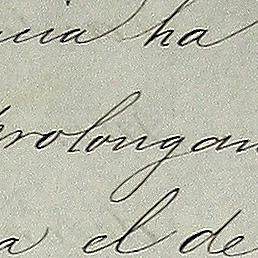 cia ha
prolongan
a el de